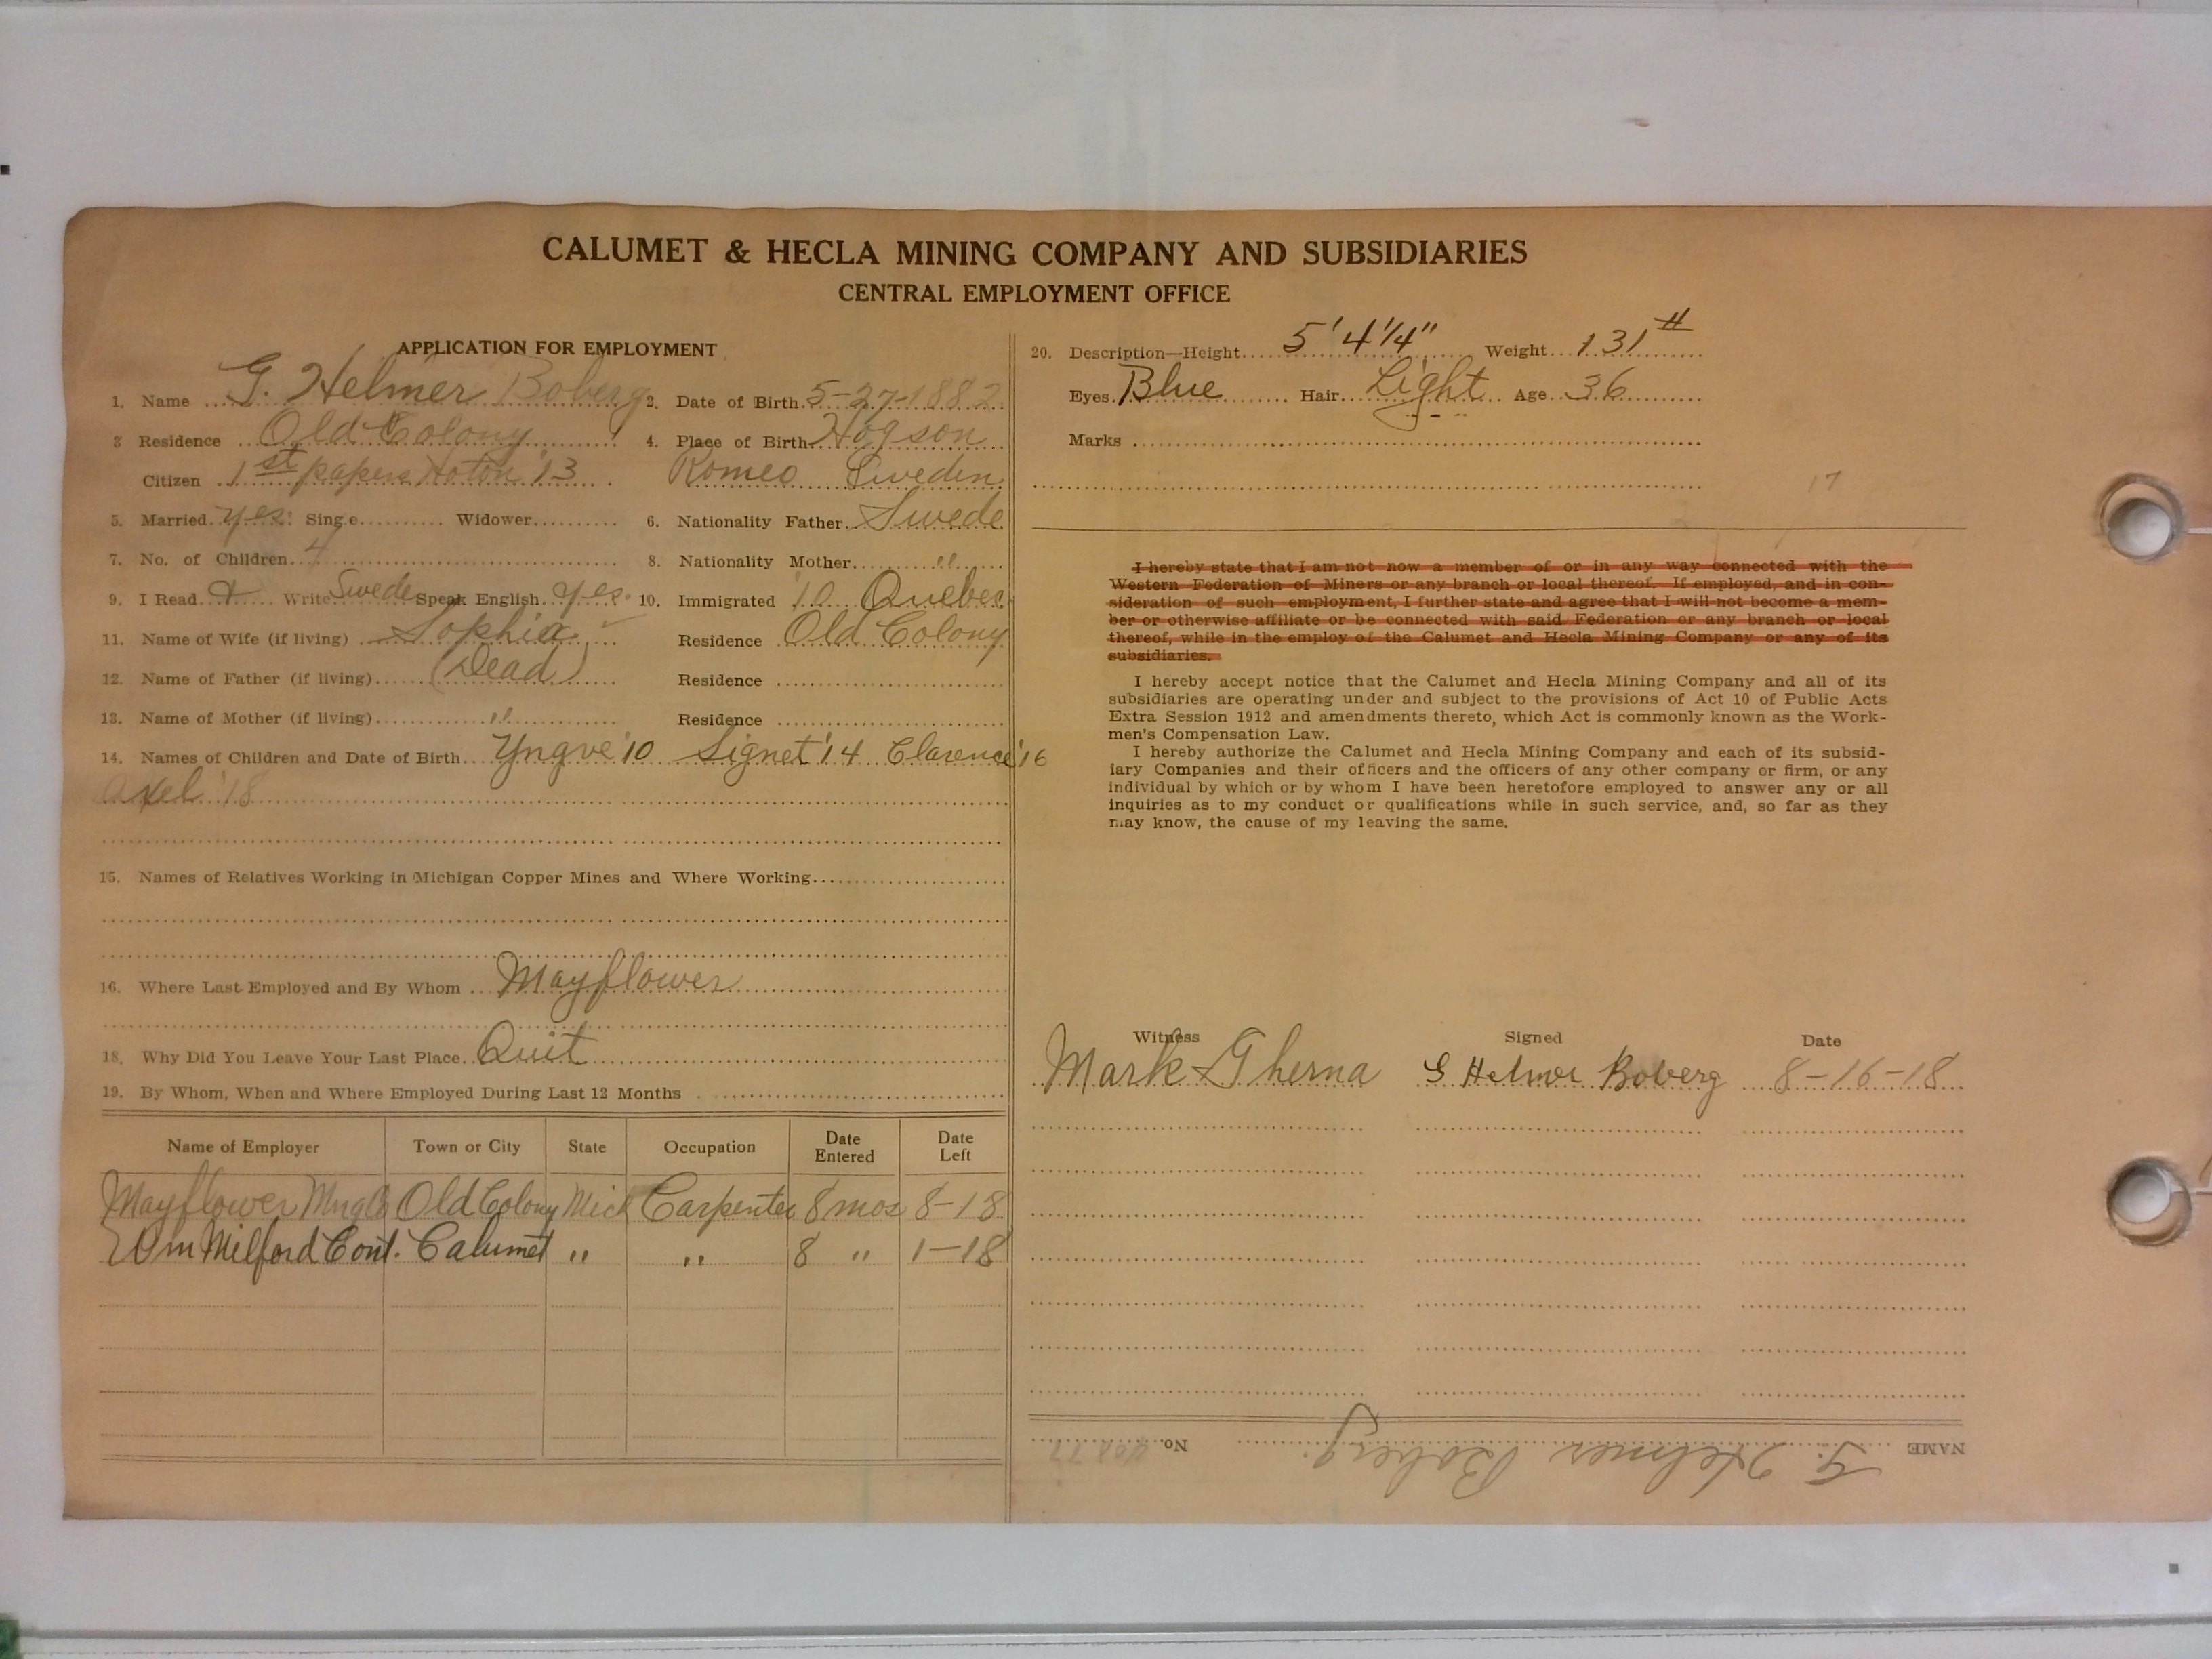 CALUMET & HECLA MINING COMPANY AND SUBSIDIARIES
CENTRAL EMPLOYMENT OFFICE
APPLICATION FOR EMPLOYMENT
1. Name G. Helmer Boberg 2. Date of Birth 5-27-1882
3 Residence Old Colony 4. Place of Birth Hogson
Citizen 1st papers Hoton '13 Romeo Sweden
5. Married yes Single Widower 6. Nationality Father Swede
7. No. of Children 4 8. Nationality Mother "
9. I Read & Write Swede Speak English yes 10. Immigrated '10 Quebec
11. Name of Wife (if living) Sophia Residence Old Colony
12. Name of Father (if living) (Dead) Residence
13. Name of Mother (if living) " Residence
14. Names of Children and Date of Birth Yngve '10 Signet '14 Clarence '16
Axel '18
15. Names of Relatives Working in Michigan Copper Mines and Where Working
16. Where Last Employed and By Whom Mayflower
18. Why Did You Leave Your Last Place Quit
19. By Whom, When and Where Employed During Last 12 Months
Name of Employer Town or City State Occupation Date Entered Date Left
Mayflower Mng Co Old Colony Mich Carpenter 8 mos 8-18
Wm Milford Cont. Calumet " " 8 " 1-18
20. Description—Height 5' 4 1/4" Weight 131#
Eyes Blue Hair Light Age 36
Marks
17
I hereby state that I am not now a member of or in any way connected with the
Western Federation of Miners or any branch or local thereof. If employed, and in con-
sideration of such employment, I further state and agree that I will not become a mem-
ber or otherwise affiliate or be connected with said Federation or any branch or local
thereof, while in the employ of the Calumet and Hecla Mining Company or any of its
subsidiaries.
I hereby accept notice that the Calumet and Hecla Mining Company and all of its
subsidiaries are operating under and subject to the provisions of Act 10 of Public Acts
Extra Session 1912 and amendments thereto, which Act is commonly known as the Work-
men's Compensation Law.
I hereby authorize the Calumet and Hecla Mining Company and each of its subsid-
iary Companies and their officers and the officers of any other company or firm, or any
individual by which or by whom I have been heretofore employed to answer any or all
inquiries as to my conduct or qualifications while in such service, and, so far as they
may know, the cause of my leaving the same.
Witness Signed Date
Mark L Gherna G Helmer Boberg 8-16-18
NAME G. Helmer Boberg. No.